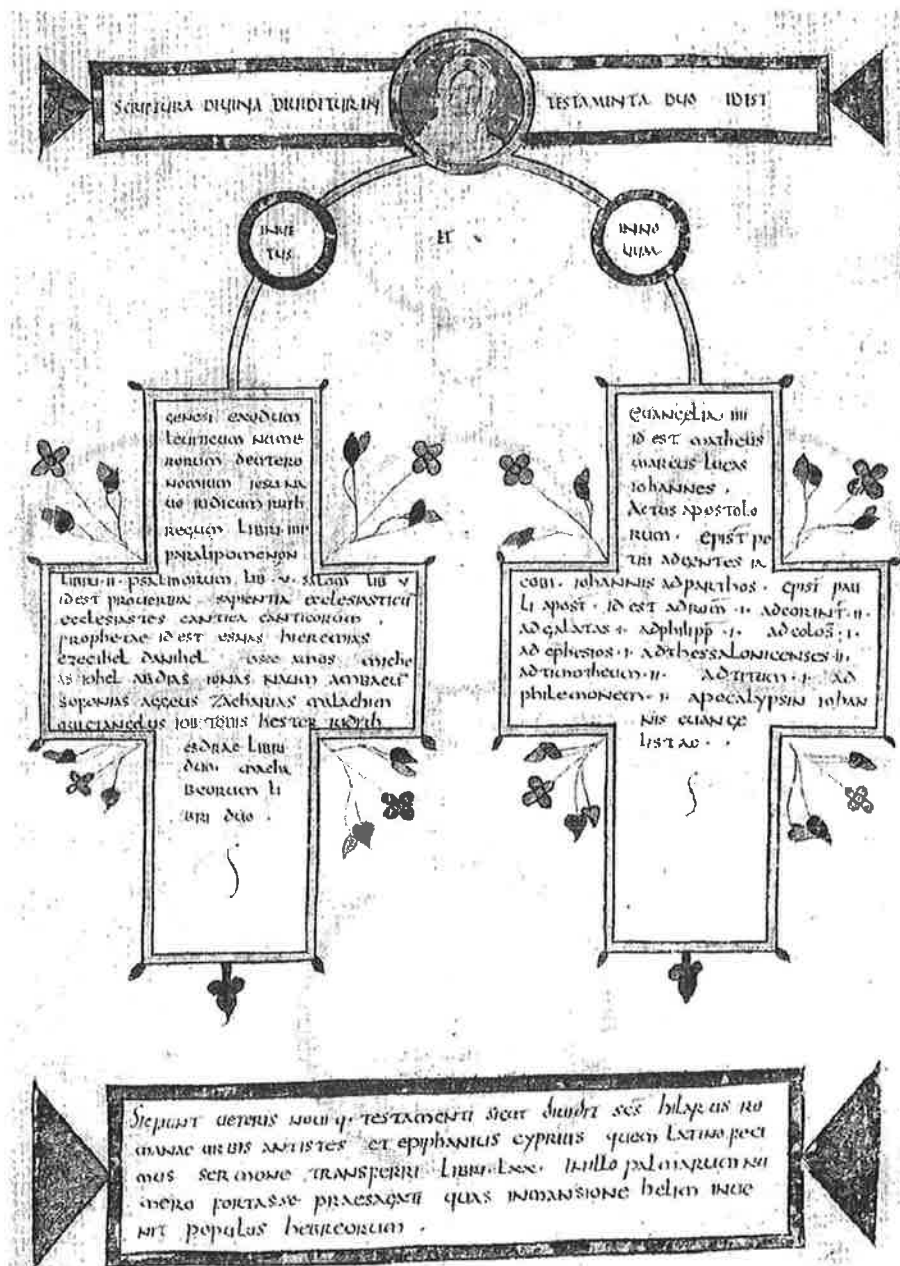 SCRIPTURA DIUINA DIUIDITUR IN TESTAMINTA DUO IDEST
INUE
TUS
ET
INNO
UUM
GENESI EXODUM
LEUITICUM NUME
RORUM DEUTERO
NOMIUM IESU NA
UE IUDICUM RUTH
REGUM LIBRI IIII
PARALIPOMENON
LIBRI II PSALMORUM LIB V SALOM LIB V
ID EST PROUERBIA SAPIENTIA ECCLESIASTICU
ECCLESIASTES CANTICA CANTICORUM
PROPHETAE ID EST ESAIAS HIEREMIAS
EZECIHEL DANIHEL OSEE AMOS MICHE
AS IOHEL ABDIAS IONAS NAUM AMBACU
SOFONIAS AGGEUS ZACHARIAS MALACHIM
IOB TOBIS HESTER IUDITH
ESDRAE LIBRI
DUO MACHA
BEORUM LI
BRI DUO .
EUANGELIA IIII
ID EST MATHEUS
MARCUS LUCAS
IOHANNES .
ACTUS APOSTOLO
RUM . EPIST PE
TRI AD GENTES IA
COBI . IOHANNIS AD PARTHOS . EPIST PAU
LI APOST . ID EST AD ROM . I . AD CORINT . II .
AD GALATAS I . AD PHILIPP . I . AD COLOS . I .
AD EPHESIOS . I . AD THESSALONICENSES . II .
AD TIMOTHEUM . II . AD TITUM . I . AD
PHILEMONEM . I . APOCALYPSIN IOHAN
NIS EUANGE
LISTAE . .
SIC FIUNT UETERIS NOUIQ . TESTAMENTI SICUT DIUIDIT SCS HILARUS RO
MANAE URBIS ANTISTES ET EPIPHANIUS CYPRIUS QUEM LATINO FECI
MUS SERMONE TRANSFERRI LIBRI LXX . IN ILLO PALMARUM NU
MERO FORTASSE PRAESAGATI QUAS IN MANSIONE HELIM INUE
NIT POPULUS HEBREORUM .